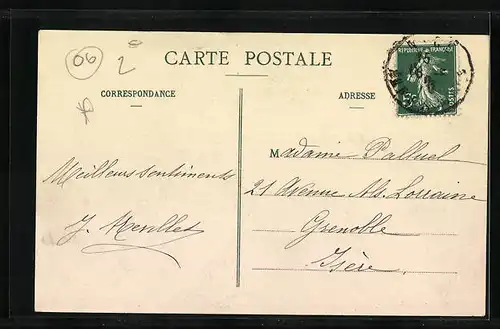 06
2
CARTE POSTALE
CORRESPONDANCE
ADRESSE
REPUBLIQUE FRANÇAISE
5c
POSTES
Meilleurs sentiments
Madame Palluel
21 Avenue Als. Lorraine
Grenoble
Isère